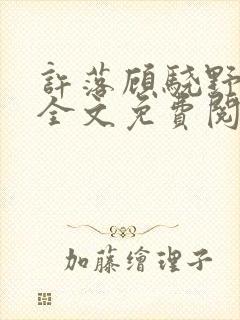 許落顧驍野
全文免費閱
加藤繪理子